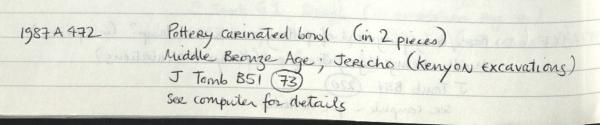 1987 A 472 Pottery carinated bowl (in 2 pieces)
Middle Bronze Age; Jericho (Kenyon excavations)
J Tomb B51 73
See computer for details